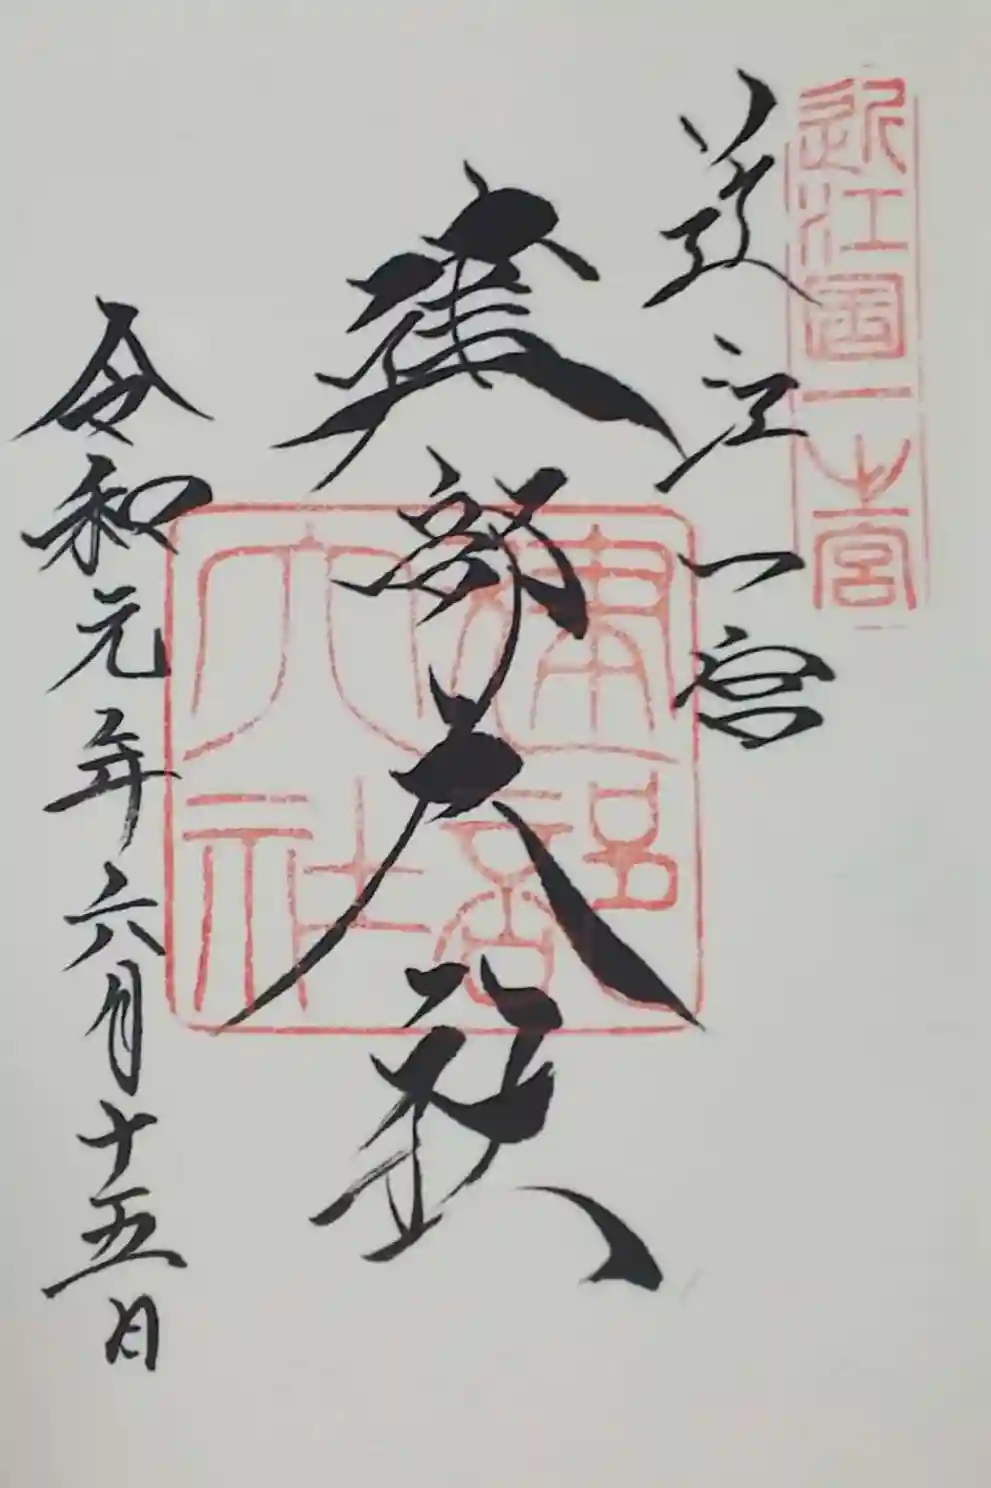 近江國一之宮
近江一宮
建部大社
建部大社
令和元年六月十五日